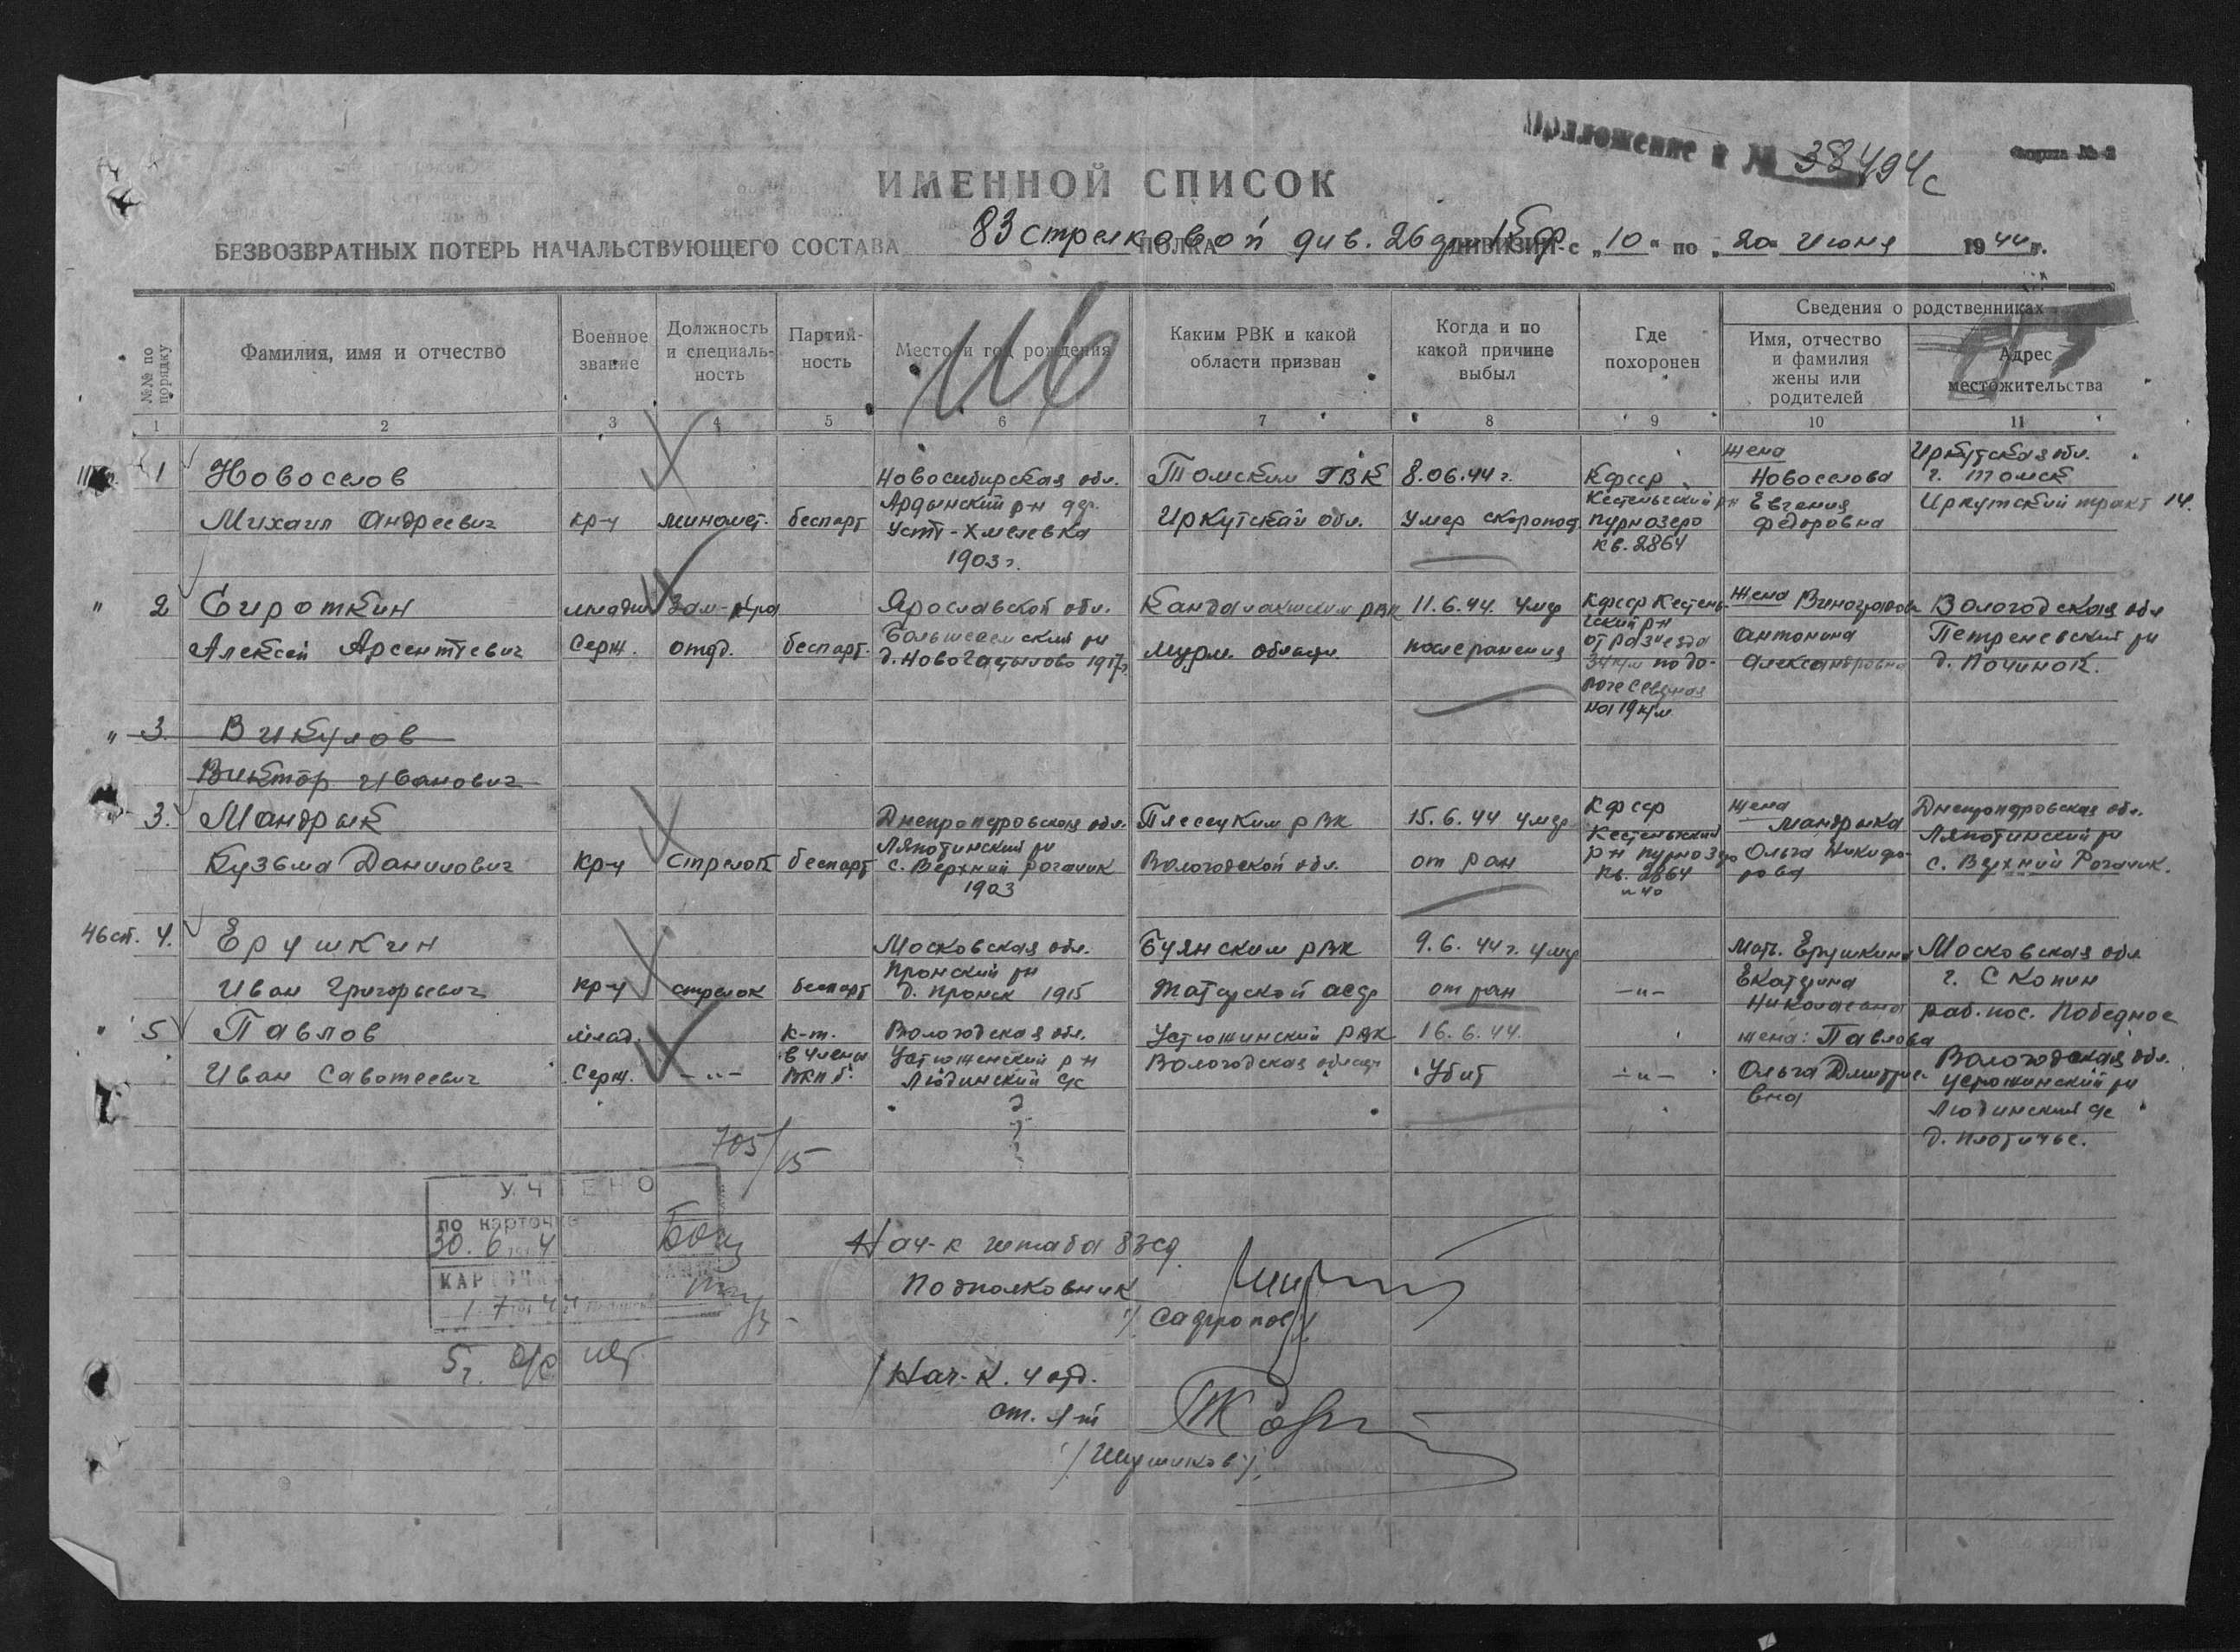 Приложение к № 38494с
Форма № 2
ИМЕННОЙ СПИСОК
БЕЗВОЗВРАТНЫХ ПОТЕРЬ НАЧАЛЬСТВУЮЩЕГО СОСТАВА 83 стрелковой ПОЛКА див. 26 ДИВИЗИИ с „10“ по „20 Июня 1944 г.
№№ по порядку
Фамилия, имя и отчество
Военное звание
Должность и специаль-ность
Партий-ность
Место и год рождения
Каким РВК и какой области призван
Когда и по какой причине выбыл
Где похоронен
Сведения о родственниках
Имя, отчество и фамилия жены или родителей
Адрес местожительства
116
1 2 3 4 5 6 7 8 9 10 11
1 Новоселов
Михаил Андреевич
кр-ц
миномет.
беспарт
Новосибирская обл.
Ардынский р-н дер.
Усть-Хмелевка
1903 г.
Томским ГВК
Иркутской обл.
8.06.44 г.
Умер скоропод.
Кфсср
Кестеньгский р-н
Пурнозеро
кв. 2864
жена
Новоселова
Евгения
Федоровна
Иркутская обл.
г. Томск
Иркутский тракт 14.
" 2 Сироткин
Алексей Арсентьевич
младш
Серж.
Зам-к-ра
отд.
беспарт.
Ярославской обл.
Большесельский рн
д. Новогатылово 1917г.
Кандалакшским рвк
Мурм. области.
11.6.44. умер
после ранения
Кфсср Кестень-
гский р-н
от разъезда
34 км по до-
роге северная
на 19 км
жена Виноградова
Антонина
Александровна
Вологодская обл
Петреневский рн
д. Починок.
" 3. Викулов
Виктор Иванович
3. Мандрык
Кузьма Данилович
Кр-ц
Стрелок
беспарт
Днепропетровская обл.
Ляпотинский рн
с. Верхний Рогачик
1903
Плесецким рвк
Вологодской обл.
15.6.44 умер
от ран
Кфсср
Кестеньгский
р-н Пурнозеро
кв. 2864
жена
Мандрыка
Ольга Никифо-
рова
Днепропетровская обл.
Ляпотинский рн
с. Верхний Рогачик.
46 сп. 4. Ерушкин
Иван Григорьевич
кр-ц
стрелок
беспарт
Московская обл.
Пронский рн
д. Пронск 1915
Буянским рвк
Татарской асср
9.6.44 г. умер
от ран
—"—
Мать Ерушкина
Екатерина
Николаевна
Московская обл
г. Скопин
раб. пос. Победное
" 5 Павлов
Иван Саватеевич
млад.
Серж.
—"—
к-т.
в члены
ВКП б.
Вологодская обл.
Устюженский р-н
Людинский с/с
Устюжинский рвк
Вологодская област
16.6.44.
Убит
—"—
жена: Павлова
Ольга Дмитрие-
вна
Вологодская обл.
Устюжинский рн
Людинский с/с
д. Плотичье.
705/15
УЧТЕНО
по карточке
30. 6 44
КАРТОЧКА
1. 7 44
Нач-к штаба 83 сд.
Подполковник
/Сафронов/
Нач-к. 4 отд.
ст. л-т
/Шушиков/